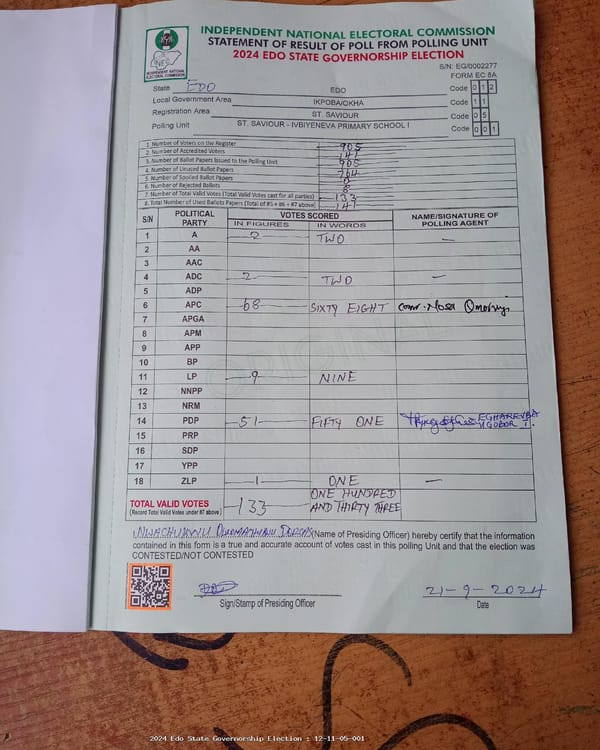 INDEPENDENT NATIONAL ELECTORAL COMMISSION
STATEMENT OF RESULT OF POLL FROM POLLING UNIT
2024 EDO STATE GOVERNORSHIP ELECTION
INEC
INDEPENDENT NATIONAL ELECTORAL COMMISSION
S/N: EG/0002277
FORM EC 8A
State EDO EDO Code 0 1 2
Local Government Area IKPOBA/OKHA Code 1 1
Registration Area ST. SAVIOUR Code 0 5
Polling Unit ST. SAVIOUR - IVBIYENEVA PRIMARY SCHOOL I Code 0 0 1
1. Number of Voters on the Register 905
2. Number of Accredited Voters 141
3. Number of Ballot Papers Issued to the Polling Unit 905
4. Number of Unused Ballot Papers 764
5. Number of Spoiled Ballot Papers 0
6. Number of Rejected Ballots 8
7. Number of Total Valid Votes (Total Valid Votes cast for all parties) 133
8. Total Number of Used Ballots Papers (Total of #5 + #6 + #7 above) 141
S/N POLITICAL PARTY VOTES SCORED NAME/SIGNATURE OF POLLING AGENT
IN FIGURES IN WORDS
1 A 2 TWO —
2 AA
3 AAC
4 ADC 2 TWO —
5 ADP
6 APC 68 SIXTY EIGHT
7 APGA
8 APM
9 APP
10 BP
11 LP 9 NINE
12 NNPP
13 NRM
14 PDP 51 FIFTY ONE EGHAREVBA
15 PRP
16 SDP
17 YPP
18 ZLP 1 ONE —
TOTAL VALID VOTES 133 ONE HUNDRED AND THIRTY THREE
(Record Total Valid Votes under #7 above)
(Name of Presiding Officer) hereby certify that the information
contained in this form is a true and accurate account of votes cast in this polling Unit and that the election was
CONTESTED/NOT CONTESTED
21-9-2024
Sign/Stamp of Presiding Officer Date
2024 Edo State Governorship Election : 12-11-05-001